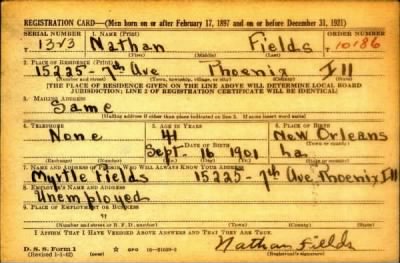 REGISTRATION CARD—(Men born on or after February 17, 1897 and on or before December 31, 1921)
SERIAL NUMBER 1. NAME (Print) ORDER NUMBER
1323 Nathan Fields 10186
(First) (Middle) (Last)
2. PLACE OF RESIDENCE (Print)
15225-7th Ave Phoenix Ill
(Number and street) (Town, township, village, or city) (County) (State)
[THE PLACE OF RESIDENCE GIVEN ON THE LINE ABOVE WILL DETERMINE LOCAL BOARD
JURISDICTION; LINE 2 OF REGISTRATION CERTIFICATE WILL BE IDENTICAL]
3. MAILING ADDRESS
Same
[Mailing address if other than place indicated on line 2. If same insert word same]
4. TELEPHONE 5. AGE IN YEARS 6. PLACE OF BIRTH
None 41 New Orleans
DATE OF BIRTH (Town or county)
Sept. 16 1901 La.
(Exchange) (Number) (Mo.) (Day) (Yr.) (State or country)
7. NAME AND ADDRESS OF PERSON WHO WILL ALWAYS KNOW YOUR ADDRESS
Myrtle Fields 15225-7th Ave. Phoenix Ill
8. EMPLOYER'S NAME AND ADDRESS
Unemployed
9. PLACE OF EMPLOYMENT OR BUSINESS
(Number and street or R. F. D. number) (Town) (County) (State)
I AFFIRM THAT I HAVE VERIFIED ABOVE ANSWERS AND THAT THEY ARE TRUE.
D. S. S. Form 1
(Revised 1-1-42) GPO
Nathan Fields
(Registrant's signature)